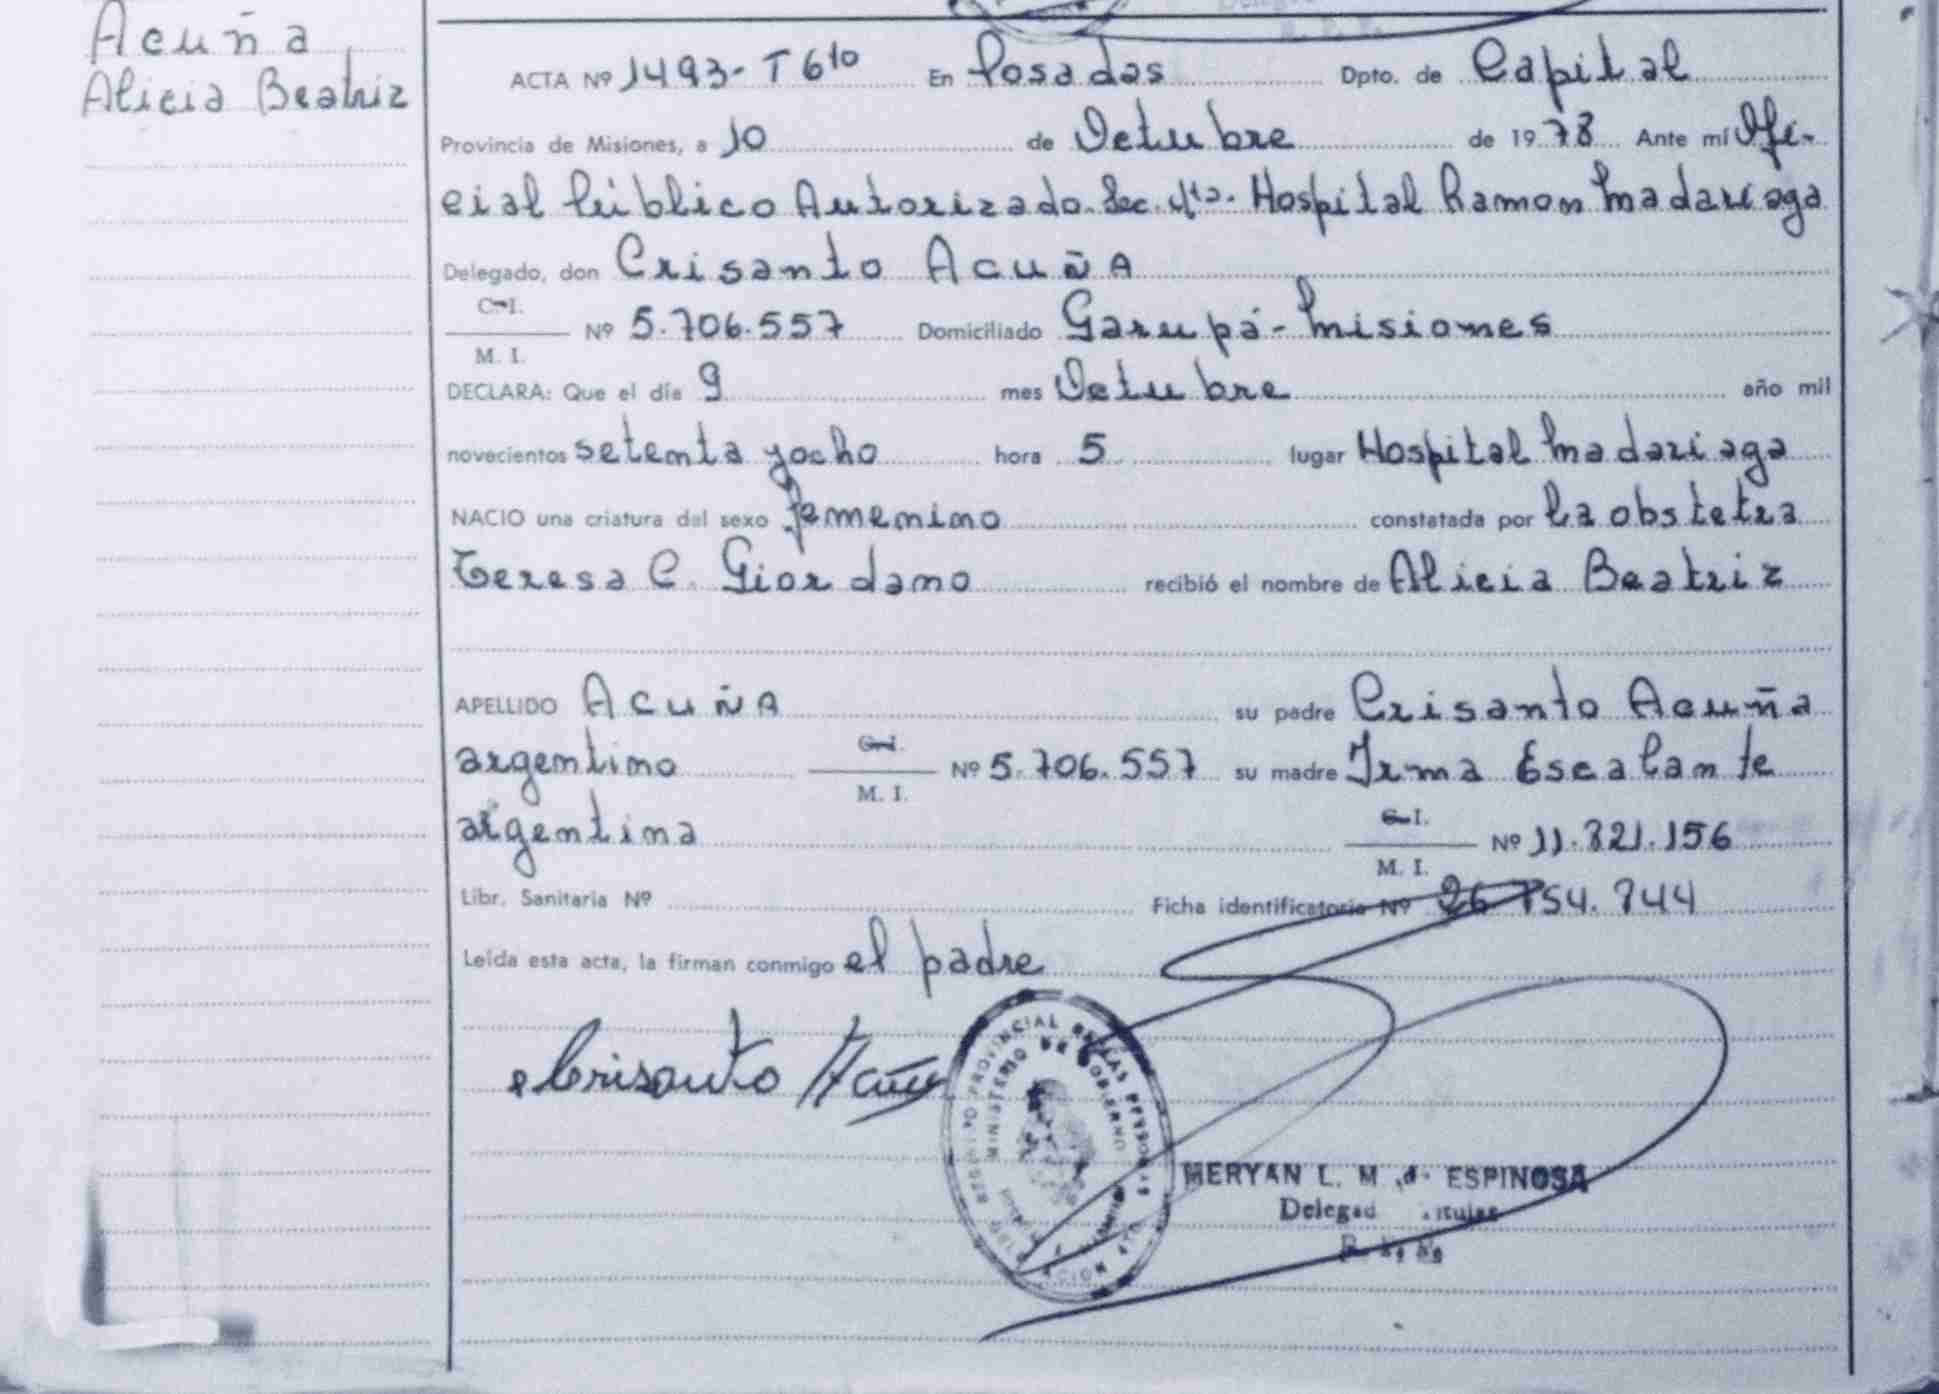 Acuña
Alicia Beatriz
ACTA Nº 1493- T 6to En Posadas Dpto. de Capital
Provincia de Misiones, a 10 de Octubre de 1978 Ante mí Ofi-
cial Público Autorizado. Sec. 4ta. Hospital Ramon Madariaga
Delegado, don Crisanto Acuña
C. I.
Nº 5.706.557 Domiciliado Garupá - Misiones
M. I.
DECLARA: Que el día 9 mes Octubre año mil
novecientos setenta y ocho hora 5 lugar Hospital Madariaga
NACIO una criatura del sexo femenino constatada por La obstetra
Teresa C. Giordano recibió el nombre de Alicia Beatriz
APELLIDO Acuña su padre Crisanto Acuña
argentino Nº 5.706.557 su madre Irma Escalante
M. I.
argentina Nº 11.321.156
M. I.
Libr. Sanitaria Nº Ficha identificatoria Nº 26.754.944
Leída esta acta, la firman conmigo el padre
Crisanto Acuña
MINISTERIO DE GOBIERNO
MERYAN L. M. ESPINOSA